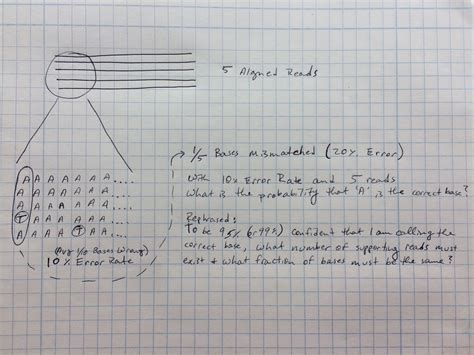 5 Aligned Reads
1/5 Bases Mismatched (20% Error)
With 10% Error Rate and 5 reads
What is the probability that 'A' is the correct base?
Rephrased:
To be 95% (or 99%) confident that I am calling the
correct base, what number of supporting reads must
exist & what fraction of bases must be the same?
A A A A A A A ....
A A A A A A A ....
A A A A A A A ....
T A A A A A ....
A A A A T A A ....
(Avg 1/10 Bases Wrong)
10% Error Rate